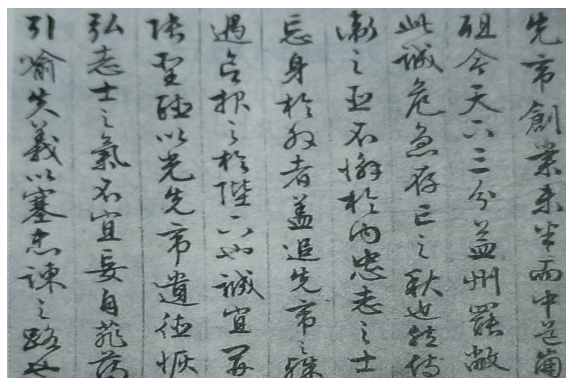 先帝創業未半而中道崩
殂今天下三分益州罷敝
此誠危急存亡之秋也然侍
衛之臣不懈於內忠志之士
忘身於外者蓋追先帝之殊
遇欲报之於陛下也誠宜開
張聖聽以光先帝遺德恢
弘志士之氣不宜妄自菲薄
引喻失義以塞忠諫之路也